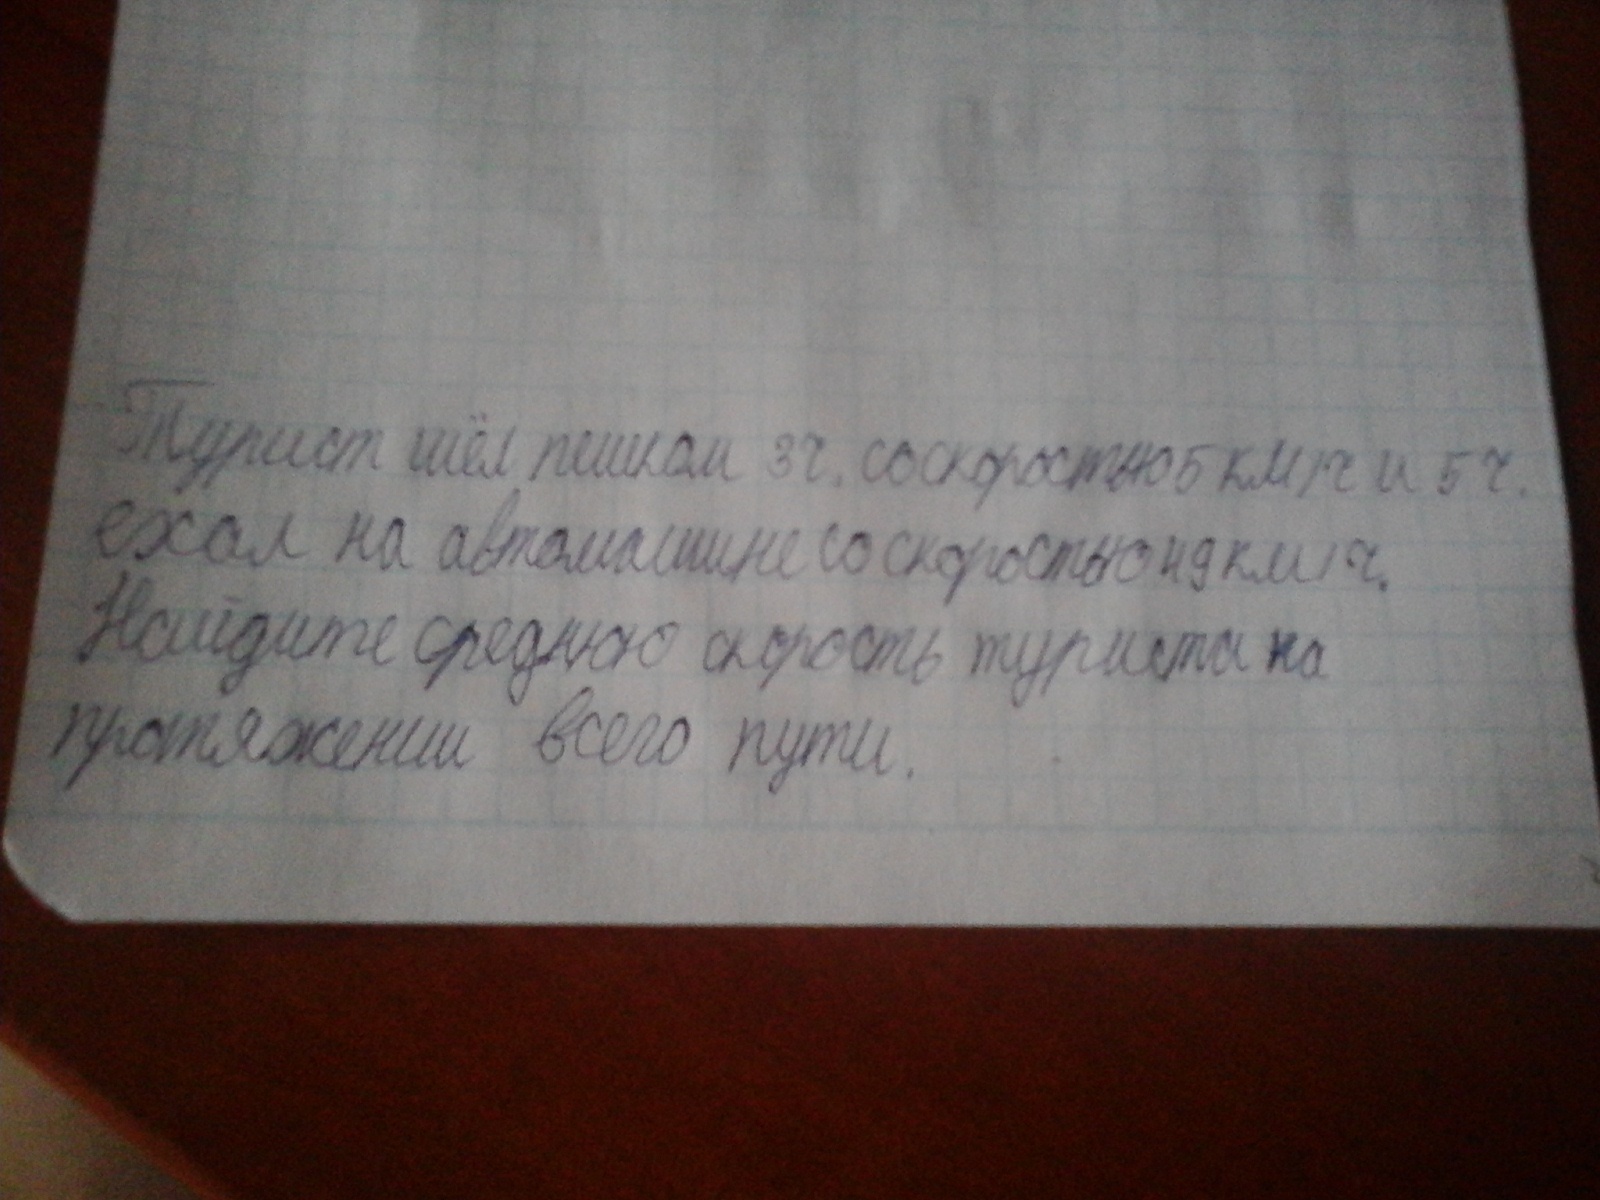 Турист шёл пешком 3ч. со скоростью 5 км/ч и 5 ч.
ехал на автомашине со скоростью 49 км/ч.
Найдите среднюю скорость туриста на
протяжении всего пути.